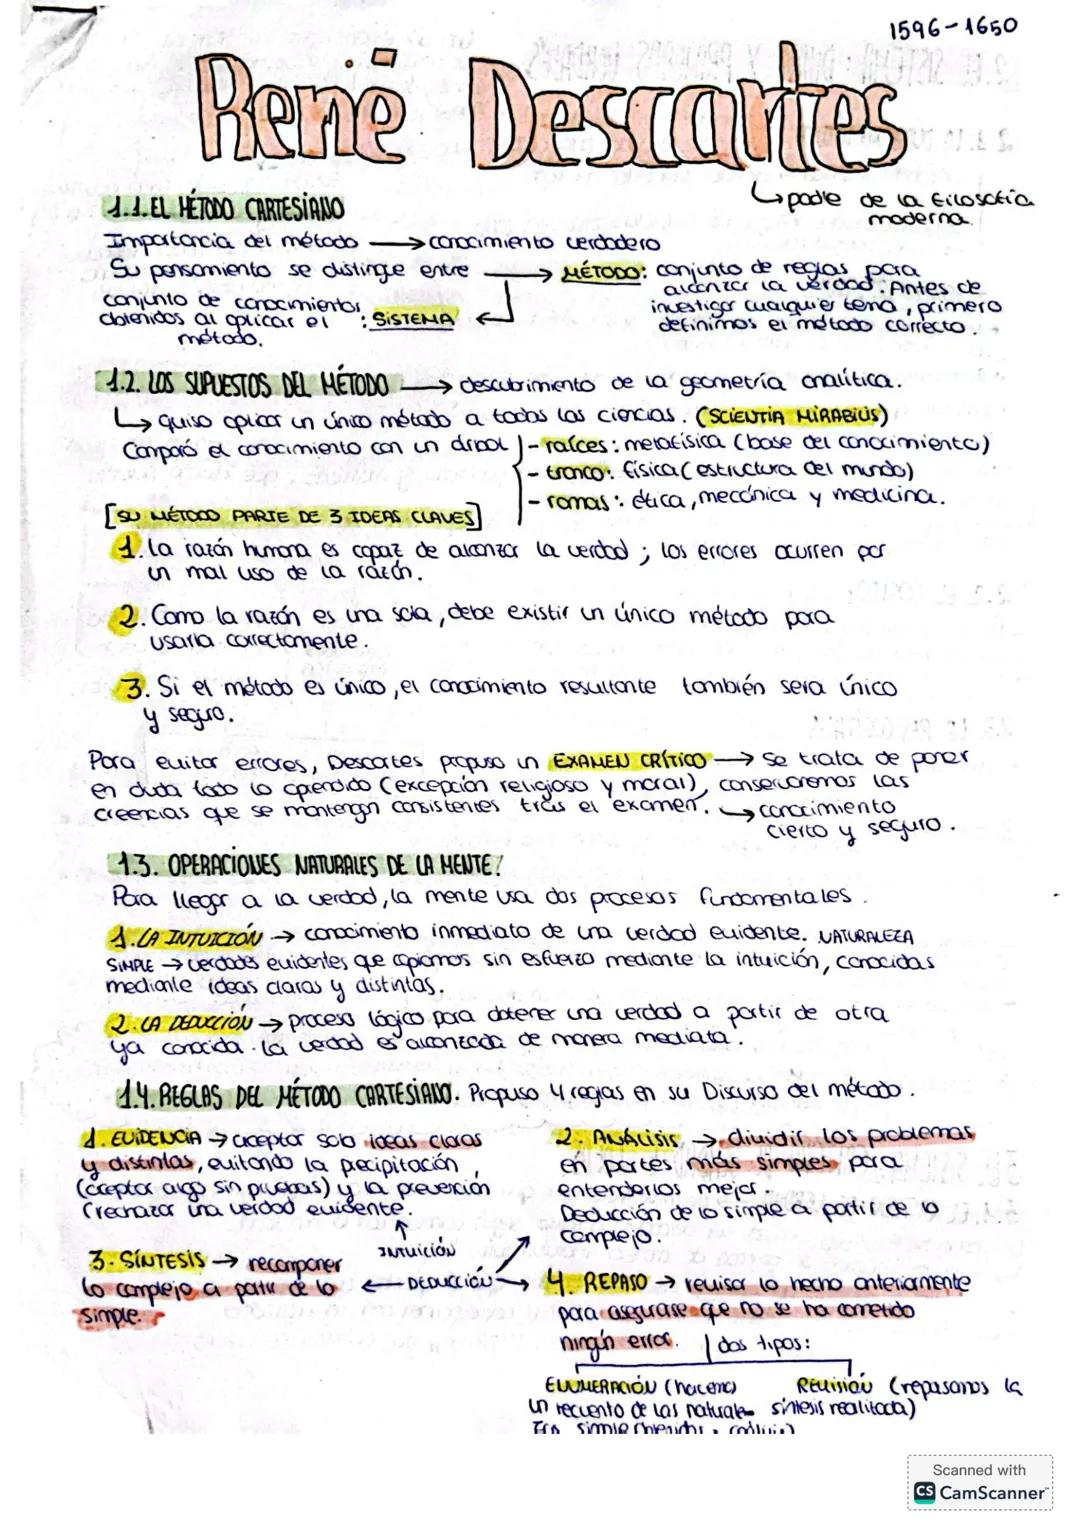 1596-1650
René Descartes
↳ padre de la filosofía
moderna.
1.1. EL MÉTODO CARTESIANO
Importancia del método → conocimiento verdadero
Su pensamiento se distinge entre → MÉTODO: conjunto de reglas para
alcanzar la verdad. Antes de
investigar cualquier tema, primero
definimos el método correcto.
conjunto de conocimientos
obtenidos al aplicar el : SISTEMA
método.
1.2. LOS SUPUESTOS DEL MÉTODO → descubrimiento de la geometría analítica.
↳ quiso aplicar un único método a todas las ciencias. (SCIENTIA MIRABIUS)
Comparó el conocimiento con un árbol
- raíces: metafísica (base del conocimiento)
- tronco: física (estructura del mundo)
- ramas: ética, mecánica y medicina.
[SU MÉTODO PARTE DE 3 IDEAS CLAVES]
1. La razón humana es capaz de alcanzar la verdad; los errores ocurren por
un mal uso de la razón.
2. Como la razón es una sola, debe existir un único método para
usarla correctamente.
3. Si el método es único, el conocimiento resultante también sera único
y seguro.
Para evitar errores, Descartes propuso un EXAMEN CRÍTICO → Se trata de poner
en duda todo lo aprendido (excepción religioso y moral), conservaremos las
creencias que se mantengan consistentes tras el examen. ↳ conocimiento
cierto y seguro.
1.3. OPERACIONES NATURALES DE LA MENTE:
Para llegar a la verdad, la mente usa dos procesos fundamentales.
1. LA INTUICIÓN → conocimiento inmediato de una verdad evidente. NATURALEZA
SIMPLE → verdades evidentes que copiamos sin esfuerzo mediante la intuición, conocidas
mediante ideas claras y distintas.
2. LA DEDUCCIÓN → proceso lógico para obtener una verdad a partir de otra
ya conocida. La verdad es alcanzada de manera mediata.
1.4. REGLAS DEL MÉTODO CARTESIANO. Propuso 4 reglas en su Discurso del método.
1. EVIDENCIA → aceptar solo ideas claras
y distintas, evitando la precipitación
(aceptar algo sin pruebas) y la prevención
(rechazar una verdad evidente.
INTUICIÓN
2. ANÁLISIS → dividir los problemas
en partes más simples para
entenderlos mejor.
Deducción de lo simple a partir de lo
complejo.
3. SÍNTESIS → recomponer
lo complejo a partir de lo
simple.
← DEDUCCIÓN →
4. REPASO → revisar lo hecho anteriormente
para asegurarse que no se ha cometido
ningún error. dos tipos:
ENUMERACIÓN (hacemos
un recuento de las natural
REVISIÓN (repasamos la
síntesis realizada)
Scanned with
CS CamScanner